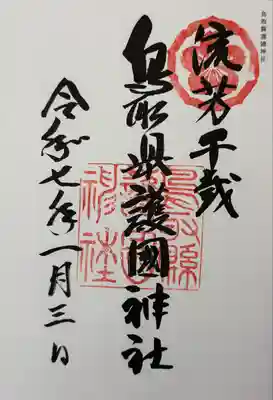 鳥取縣護國神社
流芳千歳
鳥取縣護國神社
令和七年一月三日